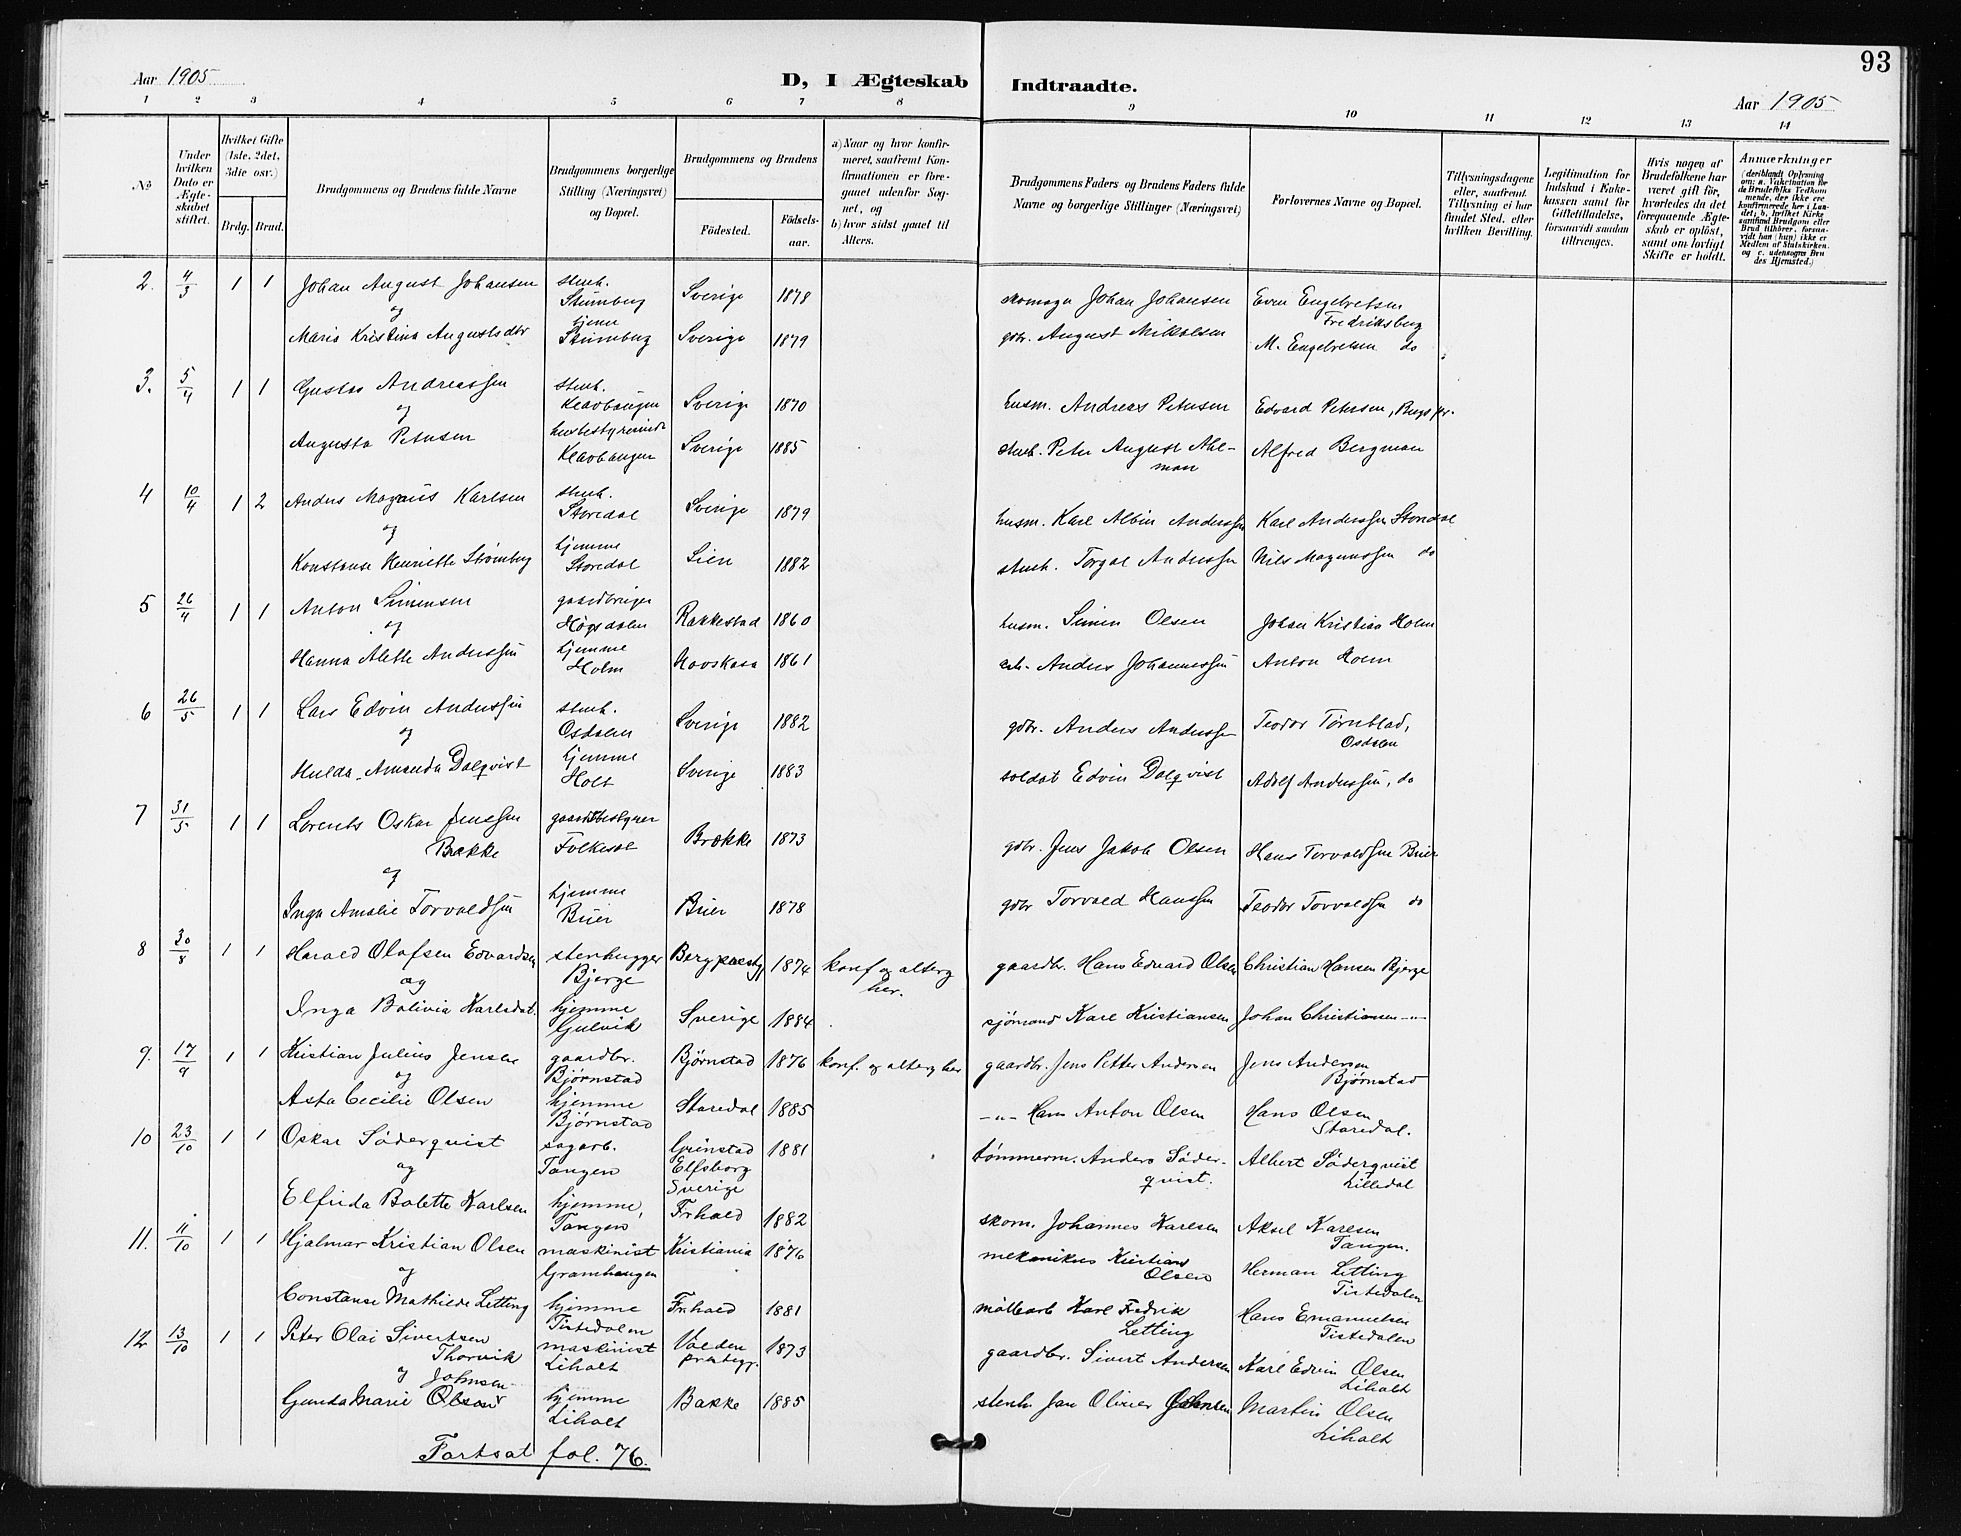 93
Aar 1905
D, I Ægteskab Indtraadte.
Aar 1905
1 2 3 4 5 6 7 8 9 10 11 12 13 14
No
Under hvilken Dato er Ægteskabet stiftet.
Hvilket Gifte (1ste, 2det, 3die osv.)
Brdg. Brud.
Brudgommens og Brudens fulde Navne
Brudgommens borgerlige Stilling (Næringsvei) og Bopæl.
Brudgommens og Brudens
Fødested.
Fødselsaar.
a) Naar og hvor konfirmeret, saafremt Konfirmationen er foregaaet udenfor Sognet, og
b) hvor sidst gaaet til Alters.
Brudgommens Faders og Brudens Faders fulde Navne og borgerlige Stillinger (Næringsvei)
Forlovernes Navne og Bopæl.
Tillysningsdagene eller, saafremt Tillysning ei har fundet Sted, efter hvilken Bevilling.
Legitimation for Indskud i Enkekassen samt for Giftetilladelse, forsaavidt saadan tiltrænges.
Hvis nogen af Brudefolkene har været gift før, hvorledes da det foregaaende Ægteskab er opløst, samt om lovligt Skifte er holdt.
Anmærkninger
(deriblandt Oplysning om: a. Vakcination for de Brudefolks Vedkommende, der ikke ere konfirmerede her i Landet; b. hvilket Kirkesamfund Brudgom eller Brud tilhører, forsaavidt han (hun) ikke er Medlem af Statskirken, og c. udensogns Brudes Hjemsted.)
2. 4/3 1 1 Johan August Johansen stenh. Stumberg Sverige 1878 skomager Johan Johansen Even Engebretsen Fredriksberg
og
Maria Kristina Augustsdtr hjemme Stumberg Sverige 1879 gbr. August Mikalsen M. Engebretsen do
3. 5/4 1 1 Gustav Andreassen stenh. Klavhaugen Sverige 1870 husm. Andreas Petersen Edvard Petersen, Bergs pr.
og
Augusta Petersen husbestyrerinde Klavhaugen Sverige 1885 stenh. Peter August Ahlman Alfred Bergman
4 10/4 1 2 Anders Magnus Karlsen stenh. Storedal Sverige 1879 husm. Karl Albin Anderssen Karl Anderssen Storedal
og
Konstanse Henriette Strømberg hjemme Storedal Lien 1882 stenh. Torgal Anderssen Nils Magnussen do
5 26/4 1 1 Anton Simensen gaardbruger Høgsdalen Rakkestad 1860 husm. Simen Olsen Johan Kristian Holm
og
Hanna Alette Anderssen hjemme Holm 1861 arb. Anders Johannessen Anton Holm
6 26/5 1 1 Lars Edvin Anderssen stenh. Osdalen Sverige 1882 gdbr. Anders Anderssen Teodor Tørnblad, Osdalen
og
Hulda Amanda Dalqvist hjemme Holt Sverige 1883 soldat Edvin Dalqvist Adolf Anderssen, do
7 31/5 1 1 Lorents Oskar Jenssen Bække gaardbestyrer Folkesal Brække 1873 gdbr. Jens Jakob Olsen Hans Torvaldsen Brier
og
Inga Amalie Torvaldsen hjemme Brier Brier 1878 gdbr Torvald Hanssen Teodor Torvaldsen do
8 30/8 1 1 Harald Olafsen Edvardsen stenhugger Bjerge Berg præstg. 1874 konf og alterg her. gaardbr. Hans Edvard Olsen Christian Hansen Bjerge
og
Inga Bolivia Karlsdat. hjemme Gulvik Sverige 1884 sjömand Karl Kristiansen Johan Christiansen -"-
9. 17/9 1 1 Kristian Julius Jensen gaardbr. Bjørnstad Bjørnstad 1876 konf. og alterg her gaardbr. Jens Petter Andersen Jens Andersen Bjørnstad
og
Asta Cecilie Olsen hjemme Bjørnstad Storedal 1885 -"- Hans Anton Olsen Hans Olsen Storedal.
10 23/10 1 1 Oskar Söderqvist sagarb. Tangen Grinstad Elfsborg Sverige 1881 tömmerm. Anders Söderqvist. Albert Söderqvist Lilledal
og
Elfrida Bolette Karlsen hjemme, Tangen Frhald 1882 skom. Johannes Karlsen Aksel Karlsen Tangen.
11. 11/10 1 1 Hjalmar Kristian Olsen maskinist Gramhaugen Kristiania 1876 mekanikus Kristians Olsen Herman Letting Tistedalen
og
Constanse Mathilde Letting hjemme Tistedalen Frhald 1881 möllearb Karl Fredrik Letting Hans Emanuelsen Tistedalen
12 13/10 1 1 Peter Olai Sivertsen Thorvik maskinist Liholt Vaeden præstegj. 1873 gaardbr. Sivert Andersen Karl Edvin Olsen Liholt
og Johnsen
Gunda Marie Olsen hjemme Liholt Bakke 1885 stenh Jan Oliver Johnsen Martin Olsen Liholt
Fortsat fol. 76.